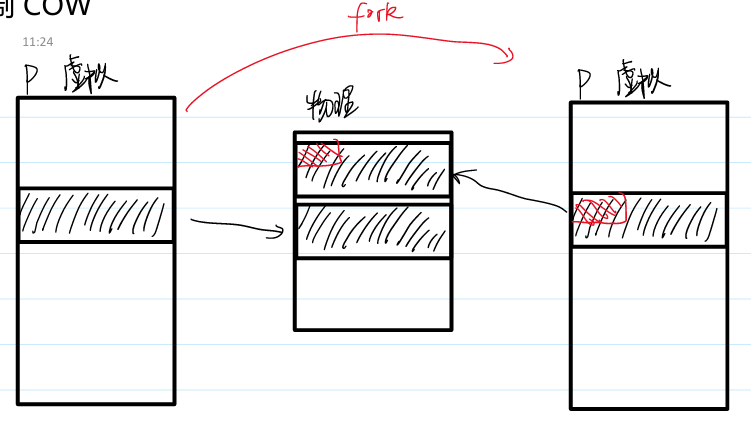 制 COW
11:24
fork
P 虚拟
物理
P 虚拟